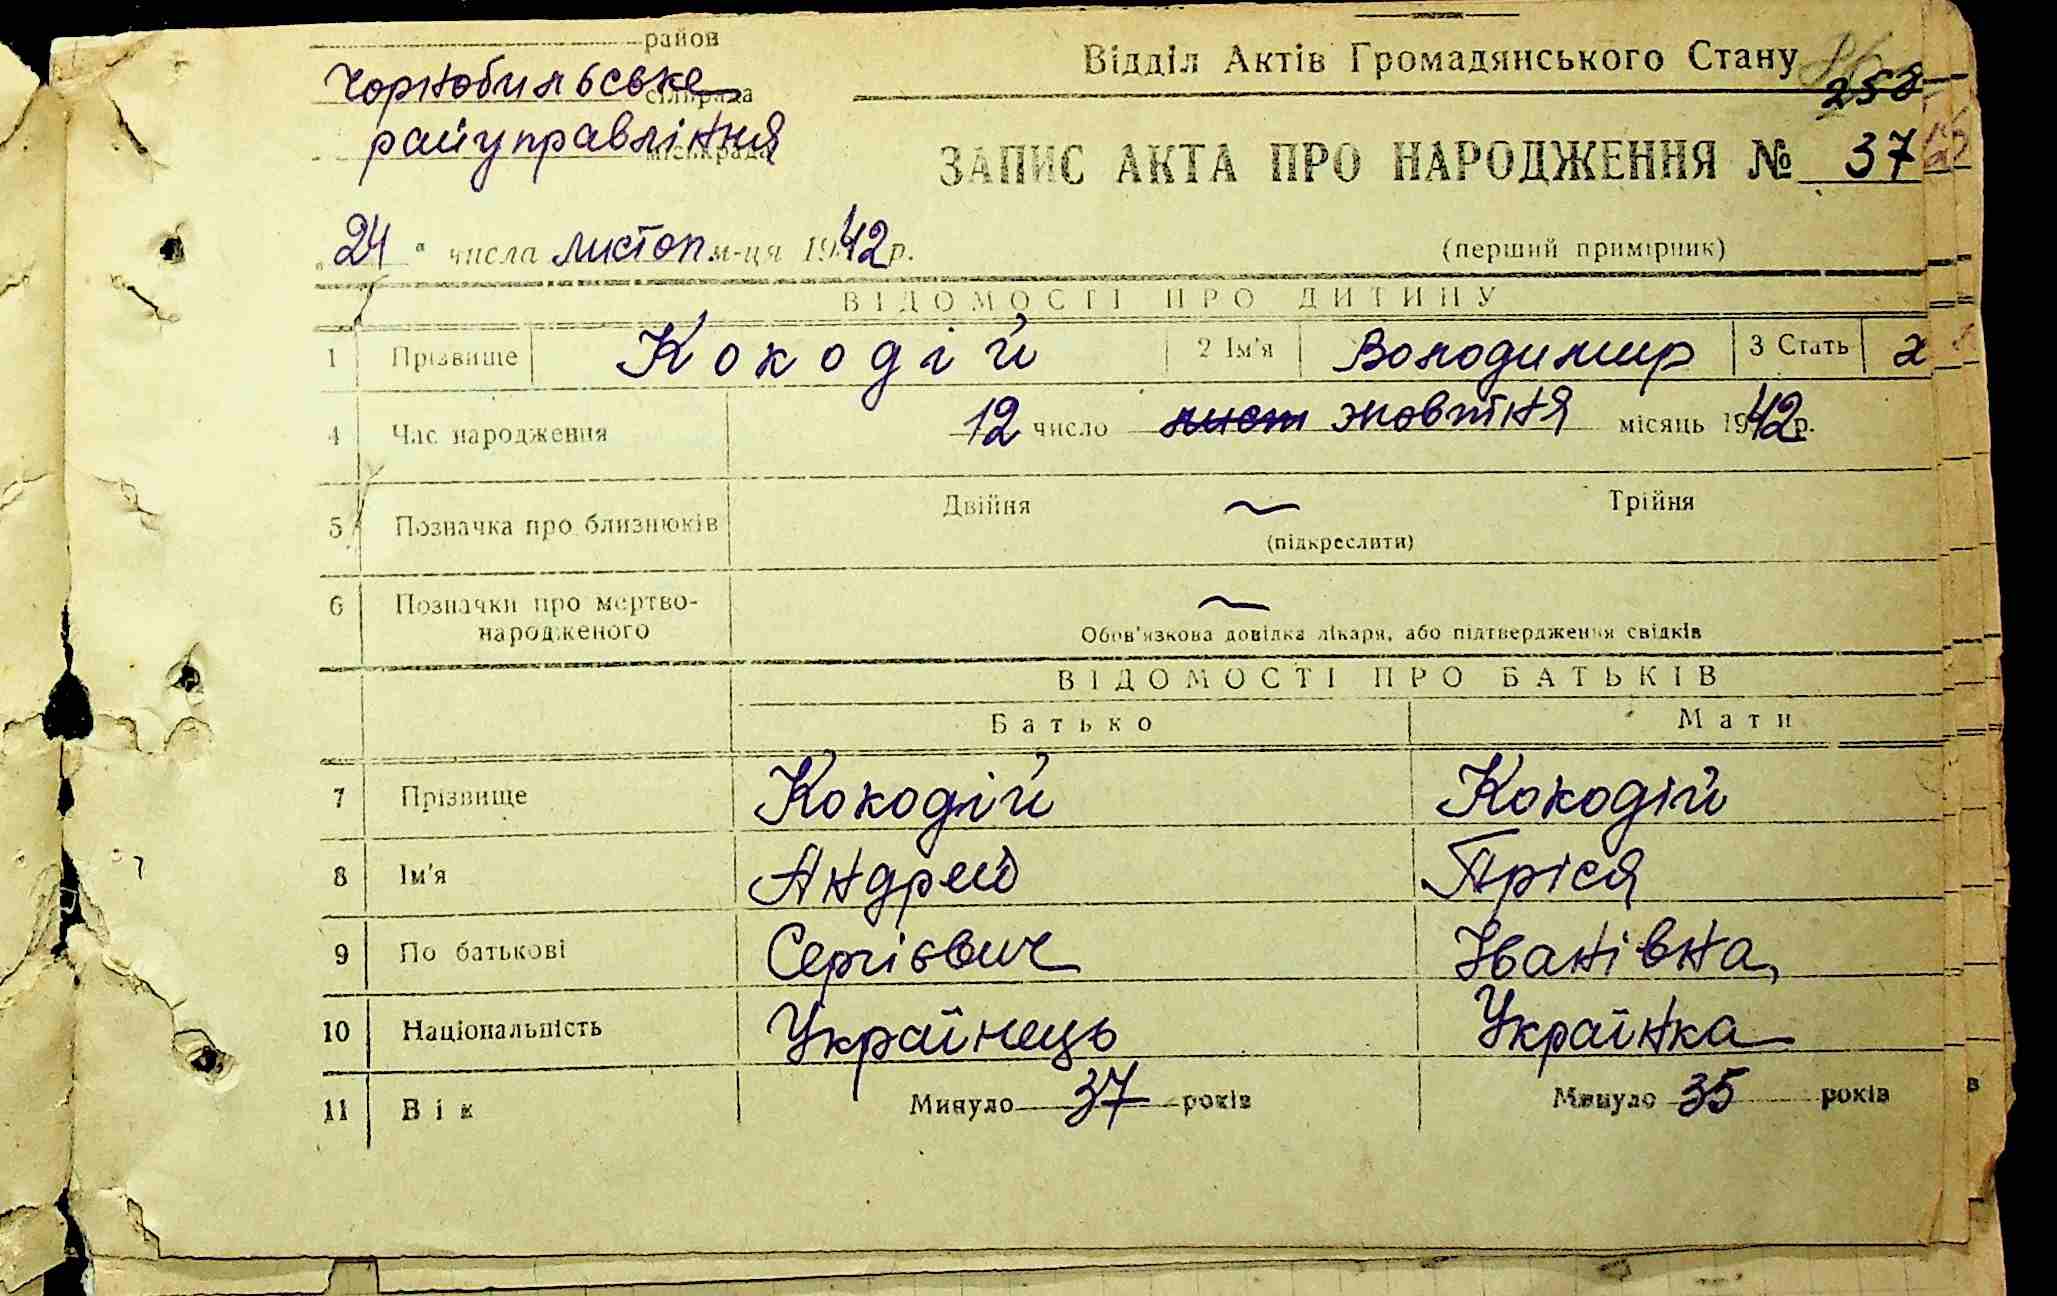 район
Чорнобильське
сільрада
райуправління
міськрада
Відділ Актів Громадянського Стану
258
ЗАПИС АКТА ПРО НАРОДЖЕННЯ № 37
„24“ числа листоп м-ця 1942 р.
(перший примірник)
ВІДОМОСТІ ПРО ДИТИНУ
1 Прізвище Кокодій 2 Ім'я Володимир 3 Стать
4 Час народження 12 число лист жовтня місяць 1942 р.
5 Позначка про близнюків Двійня ~ Трійня
(підкреслити)
6 Позначки про мертво-
народженого ~
Обов'язкова довідка лікаря, або підтвердження свідків
ВІДОМОСТІ ПРО БАТЬКІВ
Батько Мати
7 Прізвище Кокодій Кокодій
8 Ім'я Андрей Пріся
9 По батькові Сергієвич Іванівна
10 Національність Українець Українка
11 Вік Минуло 37 років Минуло 35 років
в